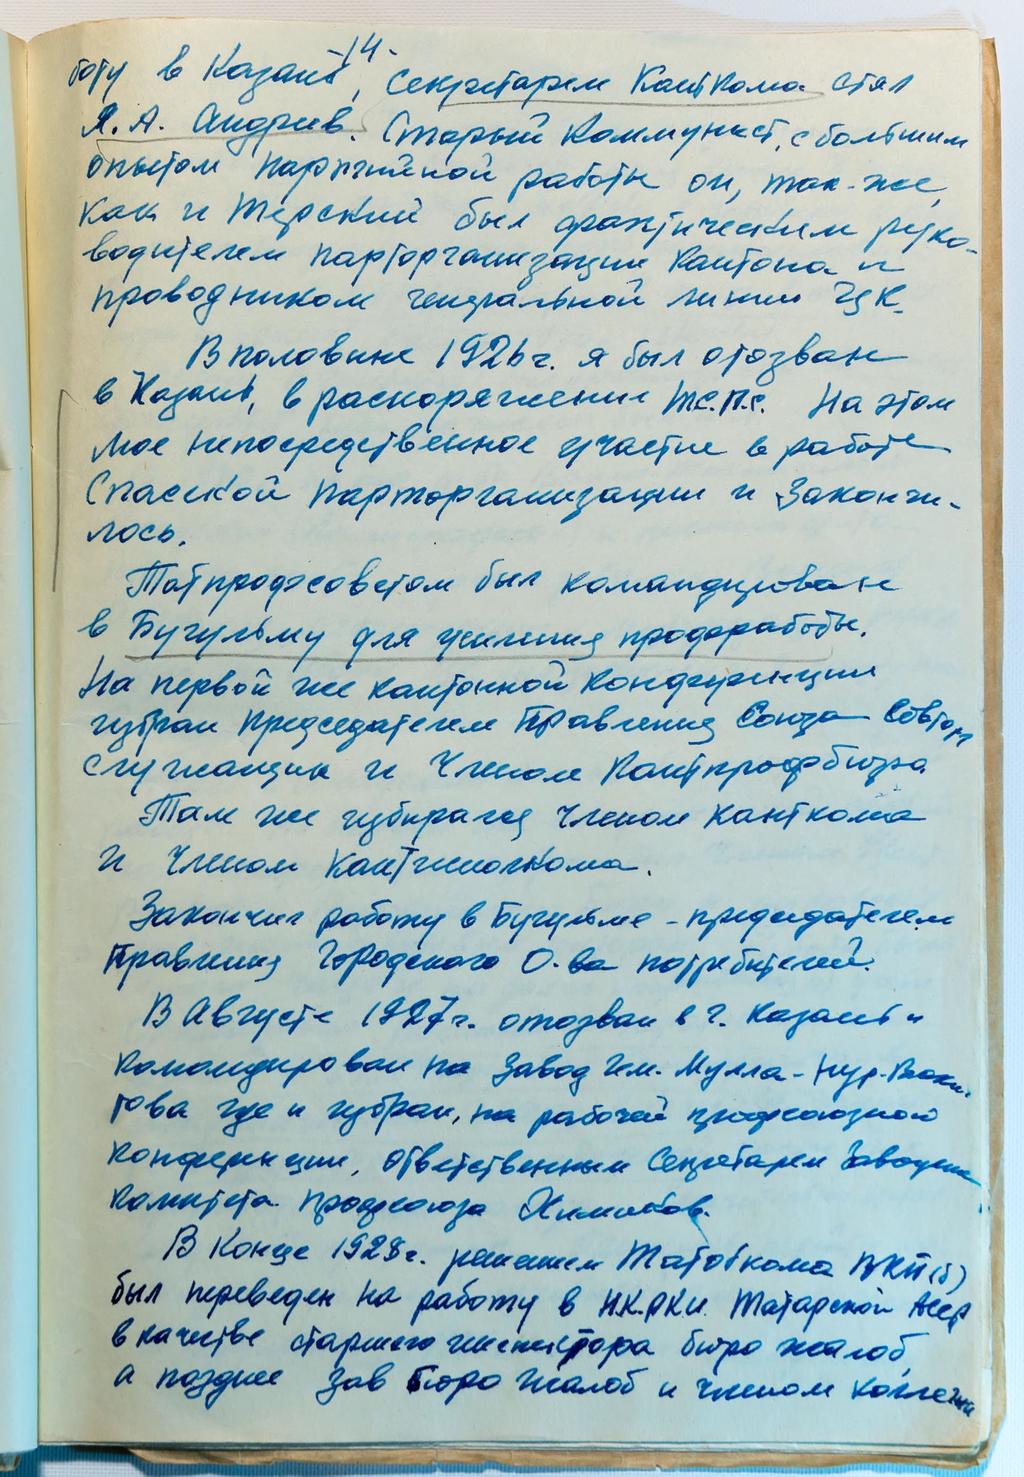 -14-
боту в Казань, Секретарем Канткома стал
Я. А. Андреев. Старый коммунист, с большим
опытом партийной работы он, так-же,
как и Терский был фактическим руко-
водителем парторганизации Кантона и
проводником генеральной линии ЦК.
В половине 1926 г. я был отозван
в Казань, в распоряжение Т.С.П.С. На этом
мое непосредственное участие в работе
Спасской парторганизации и закончи-
лось.
Татпрофсоветом был командирован
в Бугульму для усиления профработы.
На первой же кантонной конференции
избран председателем Правления Союза Совторг
служащих и членом Кантпрофбюро.
Там же избирался членом канткома
и членом кантисполкома.
Закончил работу в Бугульме - председателем
Правления Городского О-ва потребителей.
В Августе 1927 г. отозван в г. Казань и
командирован на завод им. Мулла-Нур-Вахи-
това где и избран, на рабочей профсоюзной
конференции, ответственным Секретарем Заводск
комитета профсоюза Химиков.
В конце 1928 г. решением Татобкома ВКП(б)
был переведен на работу в Н.К.РКИ. Татарской АССР
в качестве старшего инспектора бюро жалоб,
а позднее Зав бюро жалоб и членом коллегии